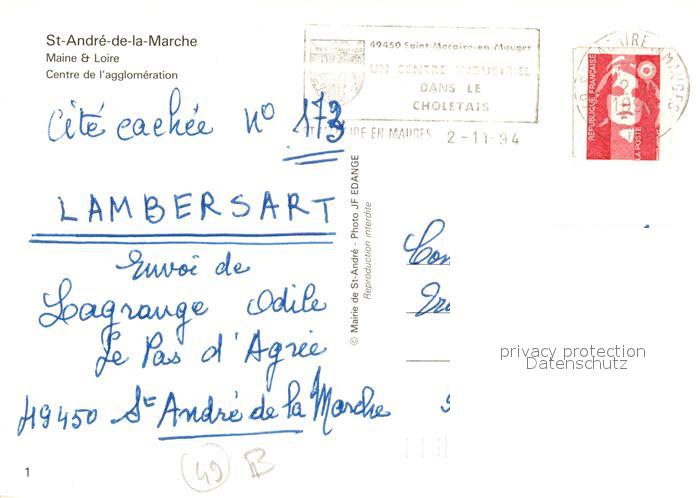 St-André-de-la-Marche
Maine & Loire
Centre de l'agglomération
49450 Saint-Macaire-en-Mauges
UN CENTRE INDUSTRIEL
DANS LE
CHOLETAIS
MACAIRE EN MAUGES 2-11-94
MACAIRE EN MAUGES
RÉPUBLIQUE FRANÇAISE
LA POSTE
Cité cachée n° 173
LAMBERSART
Envoi de
Lagrange Odile
Le Pas d'Agrée
49450 St André de la Marche
© Mairie de St-André - Photo JF EDANGE
Reproduction interdite
privacy protection
Datenschutz
49 B
1